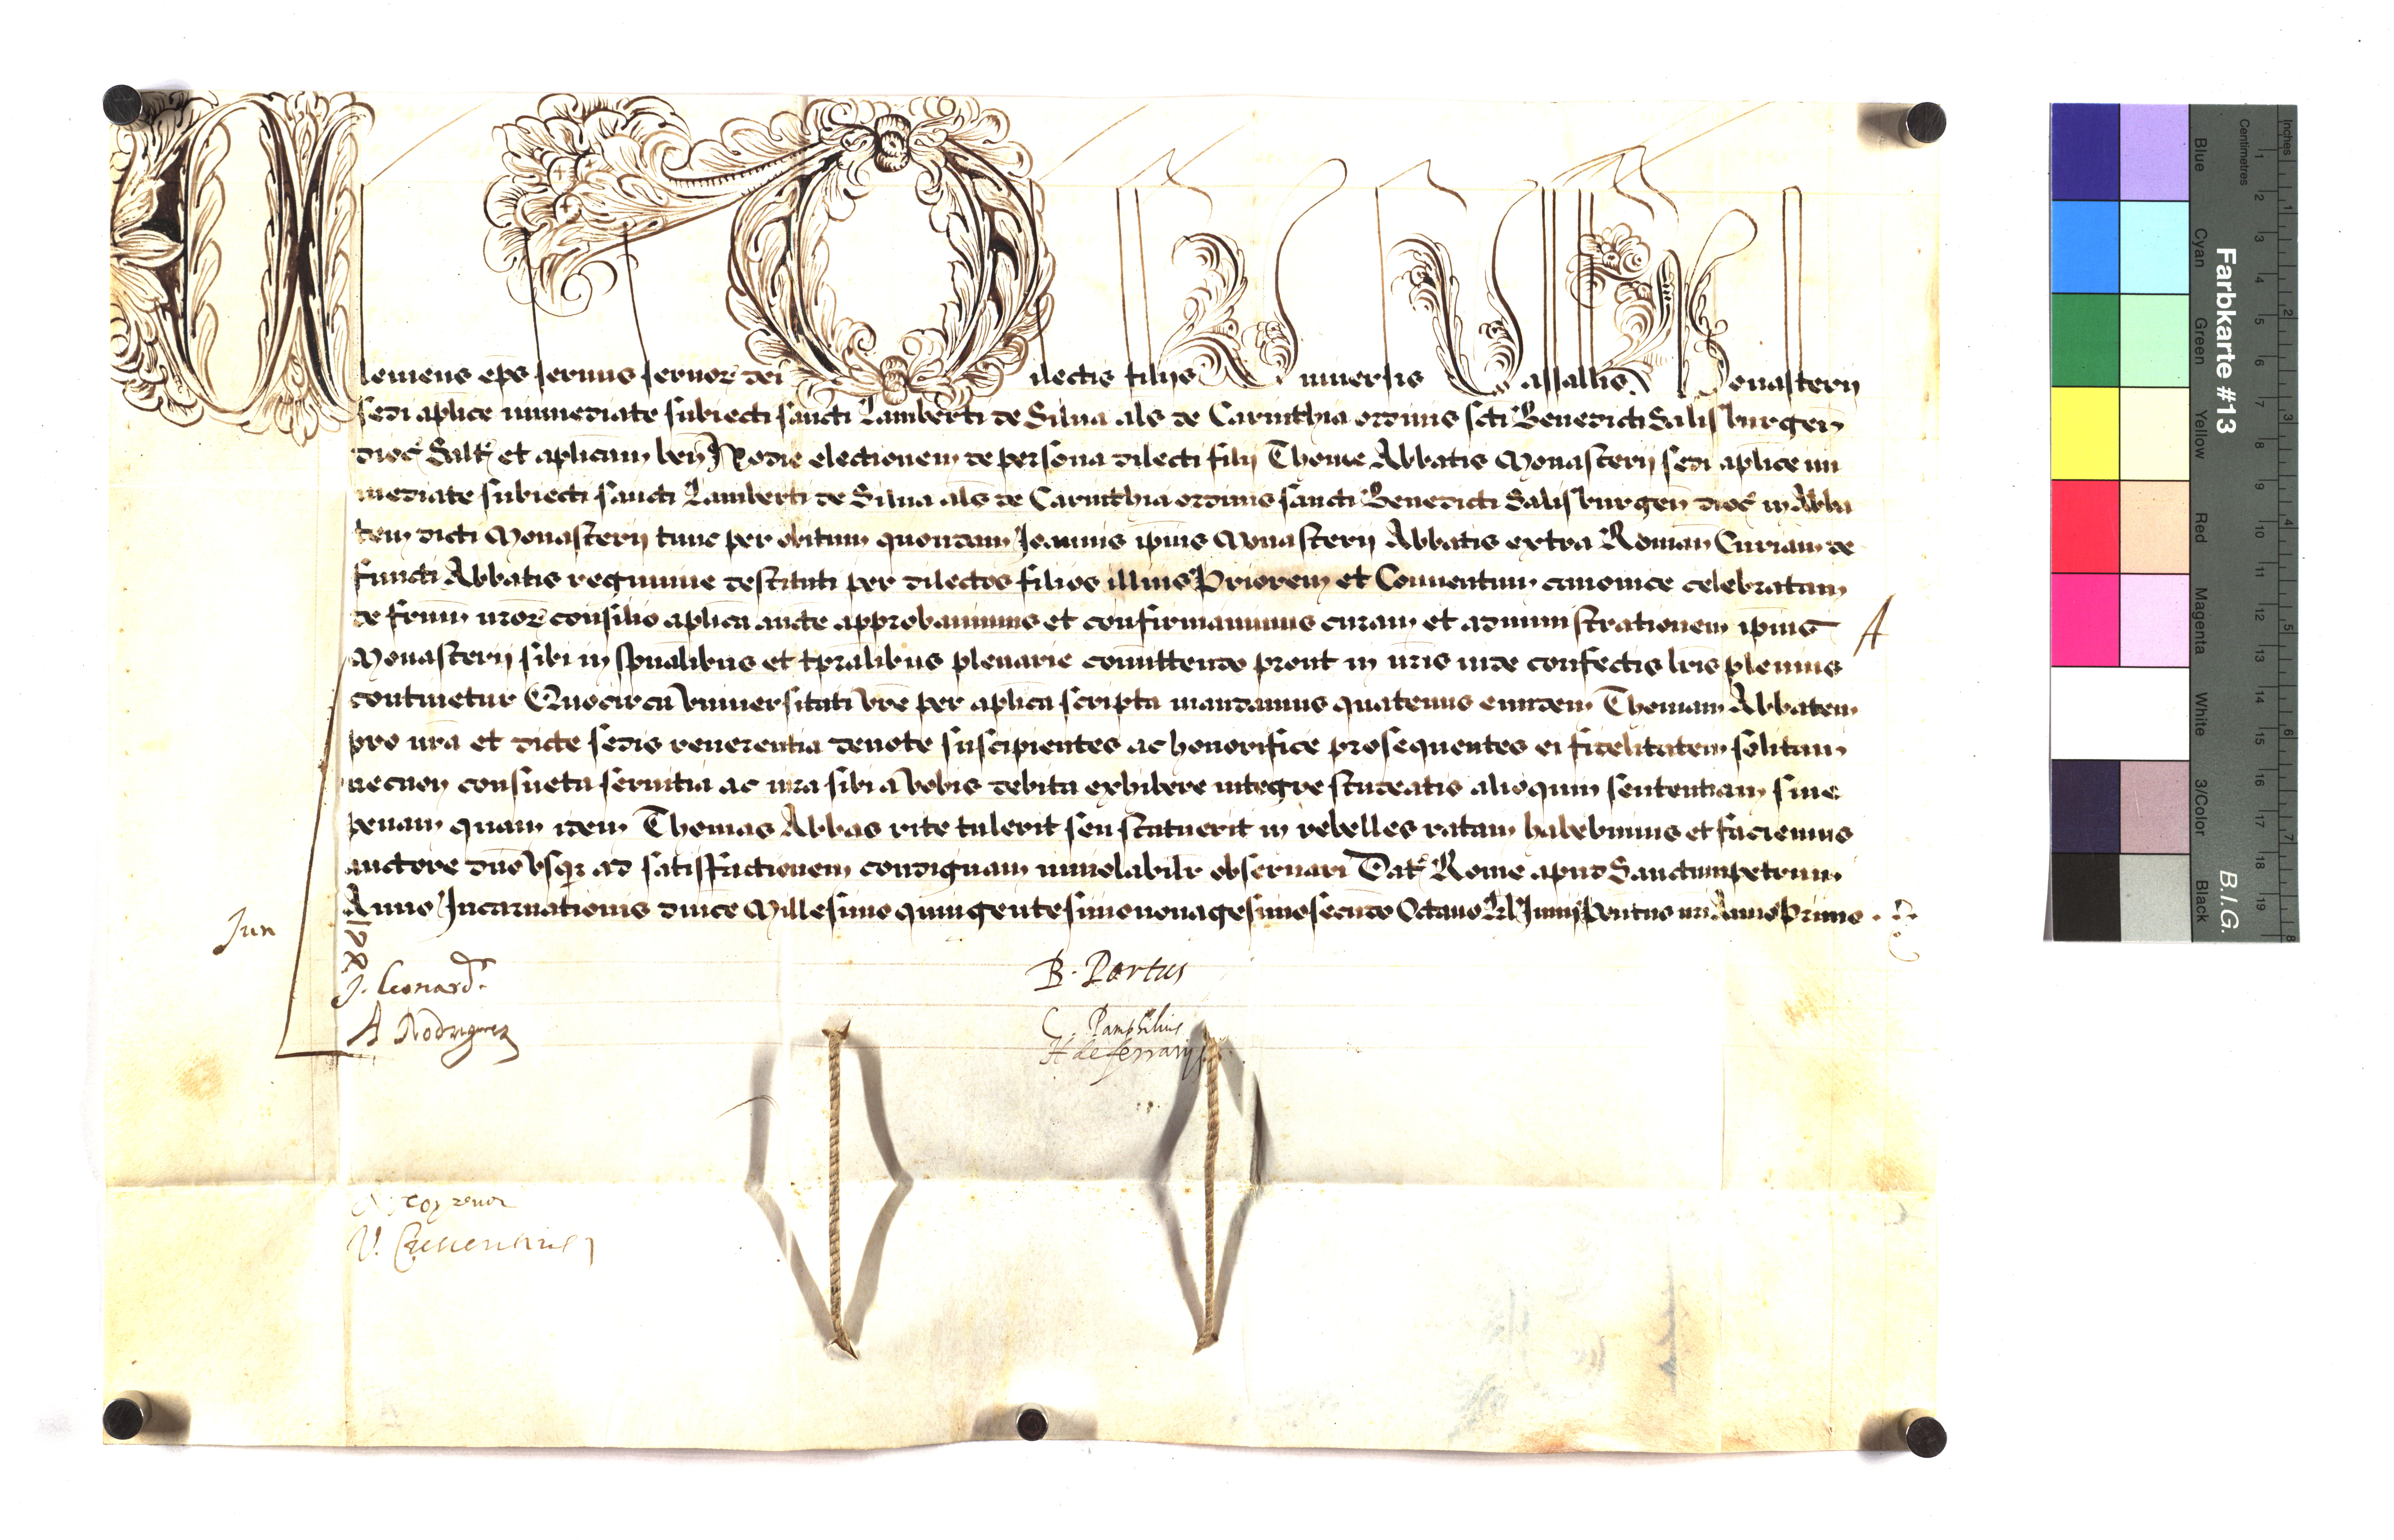 Clemens eps seruus seruor dei Dilectis filijs Vniuersis Vassallis Monasterij
sedi aplice immediate subiecti sancti Lamberti de Silua als de Carinthia ordinis scti Benedicti Salisburgen
dioc Saltm et aplicam ben Hodie electionem de persona dilecti filij Thome Abbatis Monasterij sedi aplice im
mediate subiecti sancti Lamberti de Silua als de Carinthia ordinis sancti Benedicti Salisburgen dioc in Abba
tem dicti Monasterij tunc per obitum quondam Joannis ipius Monasterij Abbatis extra Roman Curiam de
functi Abbatis regimine destituti per dilectos filios illius Priorem et Conuentum canonice celebratam
de frum nror consilio aplica aucte approbauimus et confirmauimus curam et administrationem ipius
Monasterij sibi in spualibus et tpralibus plenarie comittendo prout in nris inde confectis lris plenius
continetur Quocirca vniuersitati vre per aplica scripta mandamus quatenus eundem Thomam Abbatem
pro nra et dicte sedis reuerentia deuote suscipientes ac honorifice prosequentes ei fidelitatem solitam
necnon consueta seruitia ac iura sibi a vobis debita exhibere integre studeatis alioquin sententiam siue
penam quam idem Thomas Abbas rite tulerit seu statuerit in rebelles ratam habebimus et faciemus
auctore dno vsq ad satisfactionem condignam inuiolabilr obseruari Dat Rome apud Sanctumpetrum
Anno Incarnationis dnice Millesimo quingentesimo nonagesimo secundo Octauo Kl Junij Pontus nri Anno Primo
A
Jun
J. Leonard
A Rodriguez
B. Portus
C. Pamphilius
H de ferrarijs
Farbkarte #13
B.I.G.
Blue Cyan Green Yellow Red Magenta White 3/Color Black
Centimetres 1 2 3 4 5 6 7 8 9 10 11 12 13 14 15 16 17 18 19
Inches 1 2 3 4 5 6 7 8